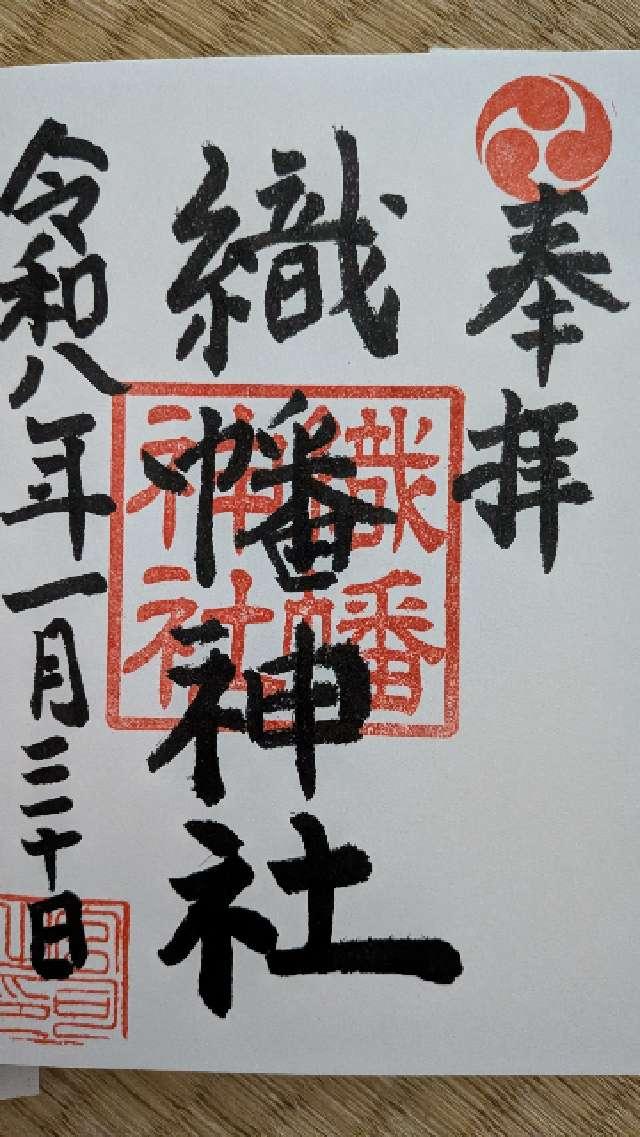 奉拝
織幡神社
織幡
神社
令和八年一月三十日